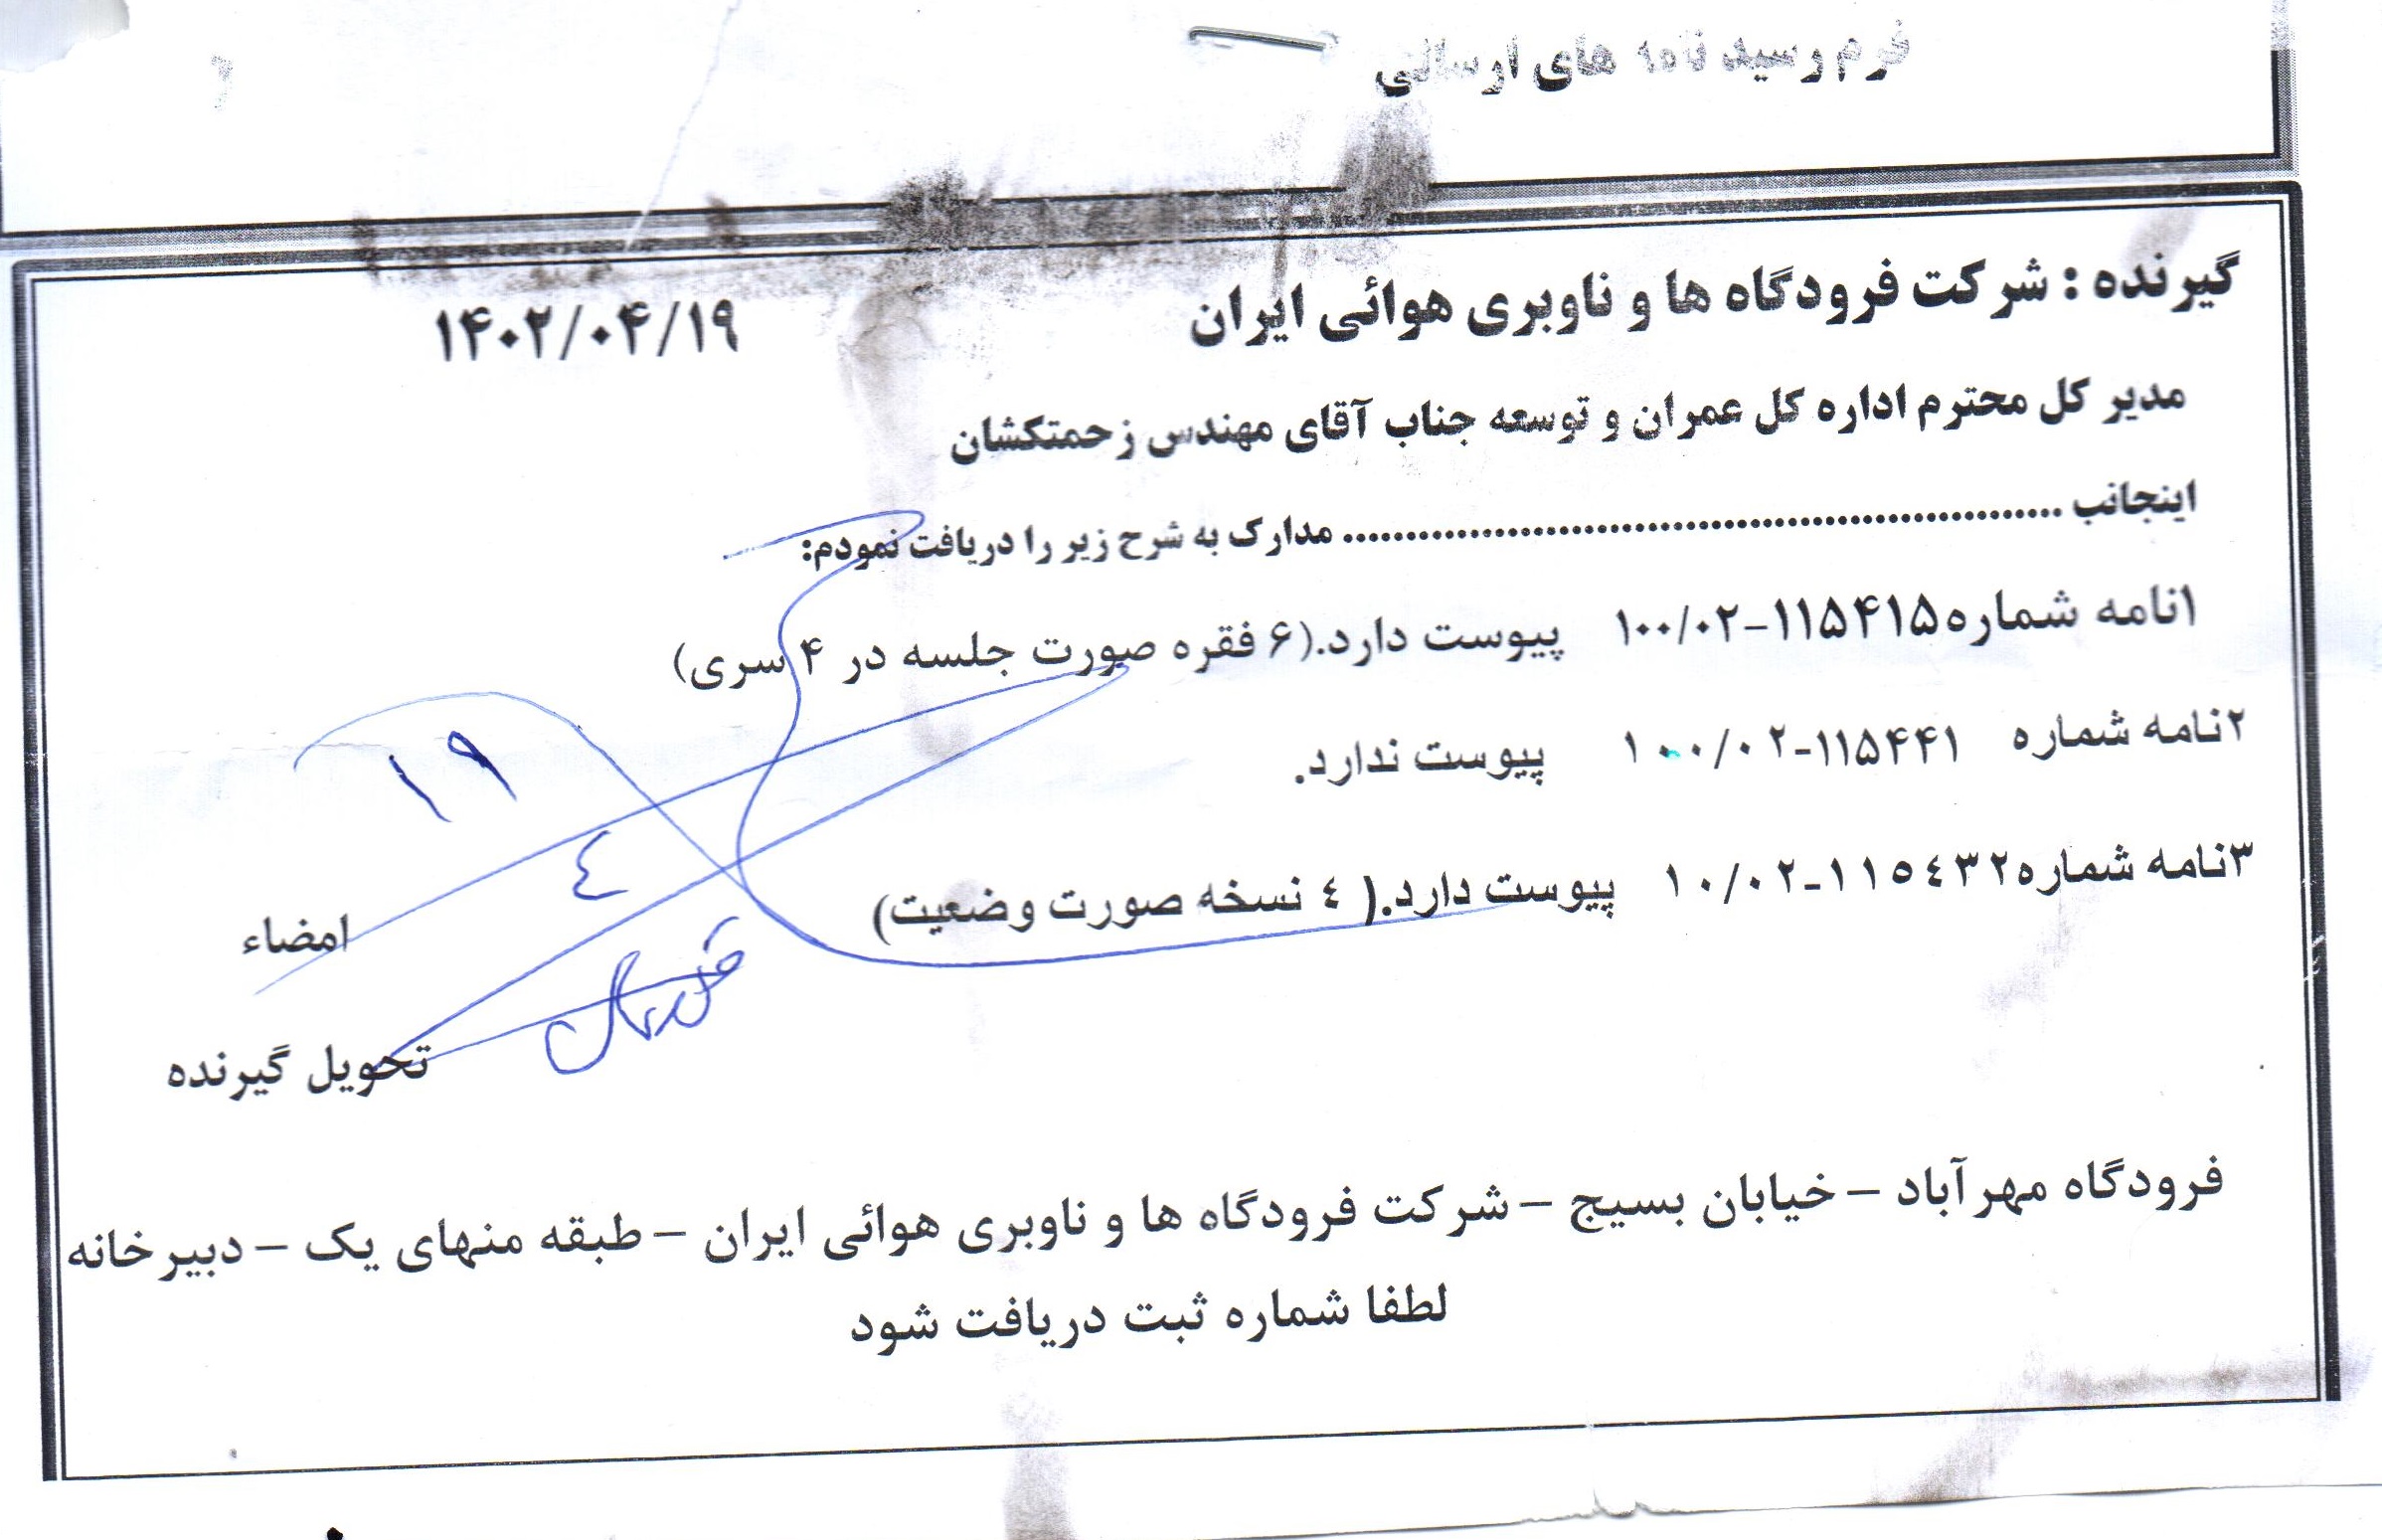 فرم رسید نامه های ارسالی
گیرنده : شرکت فرودگاه ها و ناوبری هوائی ایران ۱۴۰۲/۰۴/۱۹
مدیر کل محترم اداره کل عمران و توسعه جناب آقای مهندس زحمتکشان
اینجانب ........................................................ مدارک به شرح زیر را دریافت نمودم:
۱نامه شماره۱۱۵۴۱۵-۱۰۰/۰۲ پیوست دارد.(۶ فقره صورت جلسه در ۴ سری)
۲نامه شماره ۱۱۵۴۴۱-۱۰۰/۰۲ پیوست ندارد.
۱۹
۳نامه شماره۱۱٥٤۳۲-۱۰/۰۲ پیوست دارد.( ٤ نسخه صورت وضعیت)
٤
امضاء
تحویل گیرنده
فرودگاه مهرآباد – خیابان بسیج – شرکت فرودگاه ها و ناوبری هوائی ایران – طبقه منهای یک – دبیرخانه
لطفا شماره ثبت دریافت شود